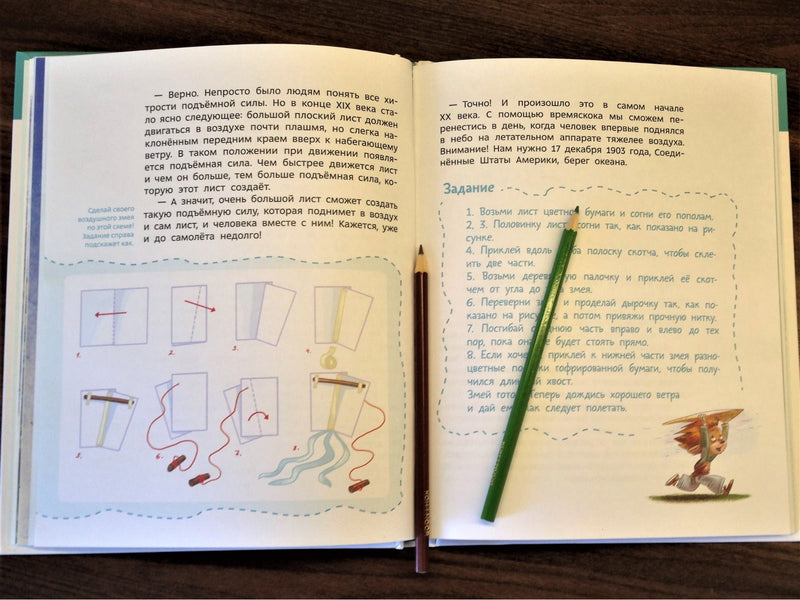 — Верно. Непросто было людям понять все хи-
трости подъёмной силы. Но в конце XIX века ста-
ло ясно следующее: большой плоский лист должен
двигаться в воздухе почти плашмя, но слегка на-
клонённым передним краем вверх к набегающему
ветру. В таком положении при движении появля-
ется подъёмная сила. Чем быстрее движется лист
и чем он больше, тем больше подъёмная сила, ко-
торую этот лист создаёт.
— А значит, очень большой лист сможет создать
такую подъёмную силу, которая поднимет в воздух
и сам лист, и человека вместе с ним! Кажется, уже
и до самолёта недолго!
Сделай своего
воздушного змея
по этой схеме!
Задание справа
подскажет как.
1.
2.
3.
4.
5.
6.
7.
8.
— Точно! И произошло это в самом начале
XX века. С помощью времяскока мы сможем пе-
ренестись в день, когда человек впервые поднялся
в небо на летательном аппарате тяжелее воздуха.
Внимание! Нам нужно 17 декабря 1903 года, Соеди-
нённые Штаты Америки, берег океана.
Задание
1. Возьми лист цветной бумаги и согни его пополам.
2, 3. Половинку листа согни так, как показано на ри-
сунке.
4. Приклей вдоль сгиба полоску скотча, чтобы скле-
ить две части.
5. Возьми деревянную палочку и приклей её скот-
чем от угла до змея.
6. Переверни змея и проделай дырочку так, как по-
казано на рисунке, а потом привяжи прочную нитку.
7. Посгибай среднюю часть вправо и влево до тех
пор, пока она не будет стоять прямо.
8. Если хочешь, приклей к нижней части змея разно-
цветные полоски гофрированной бумаги, чтобы полу-
чился длинный хвост.
Змей готов! Теперь дождись хорошего ветра
и дай ему как следует полетать.